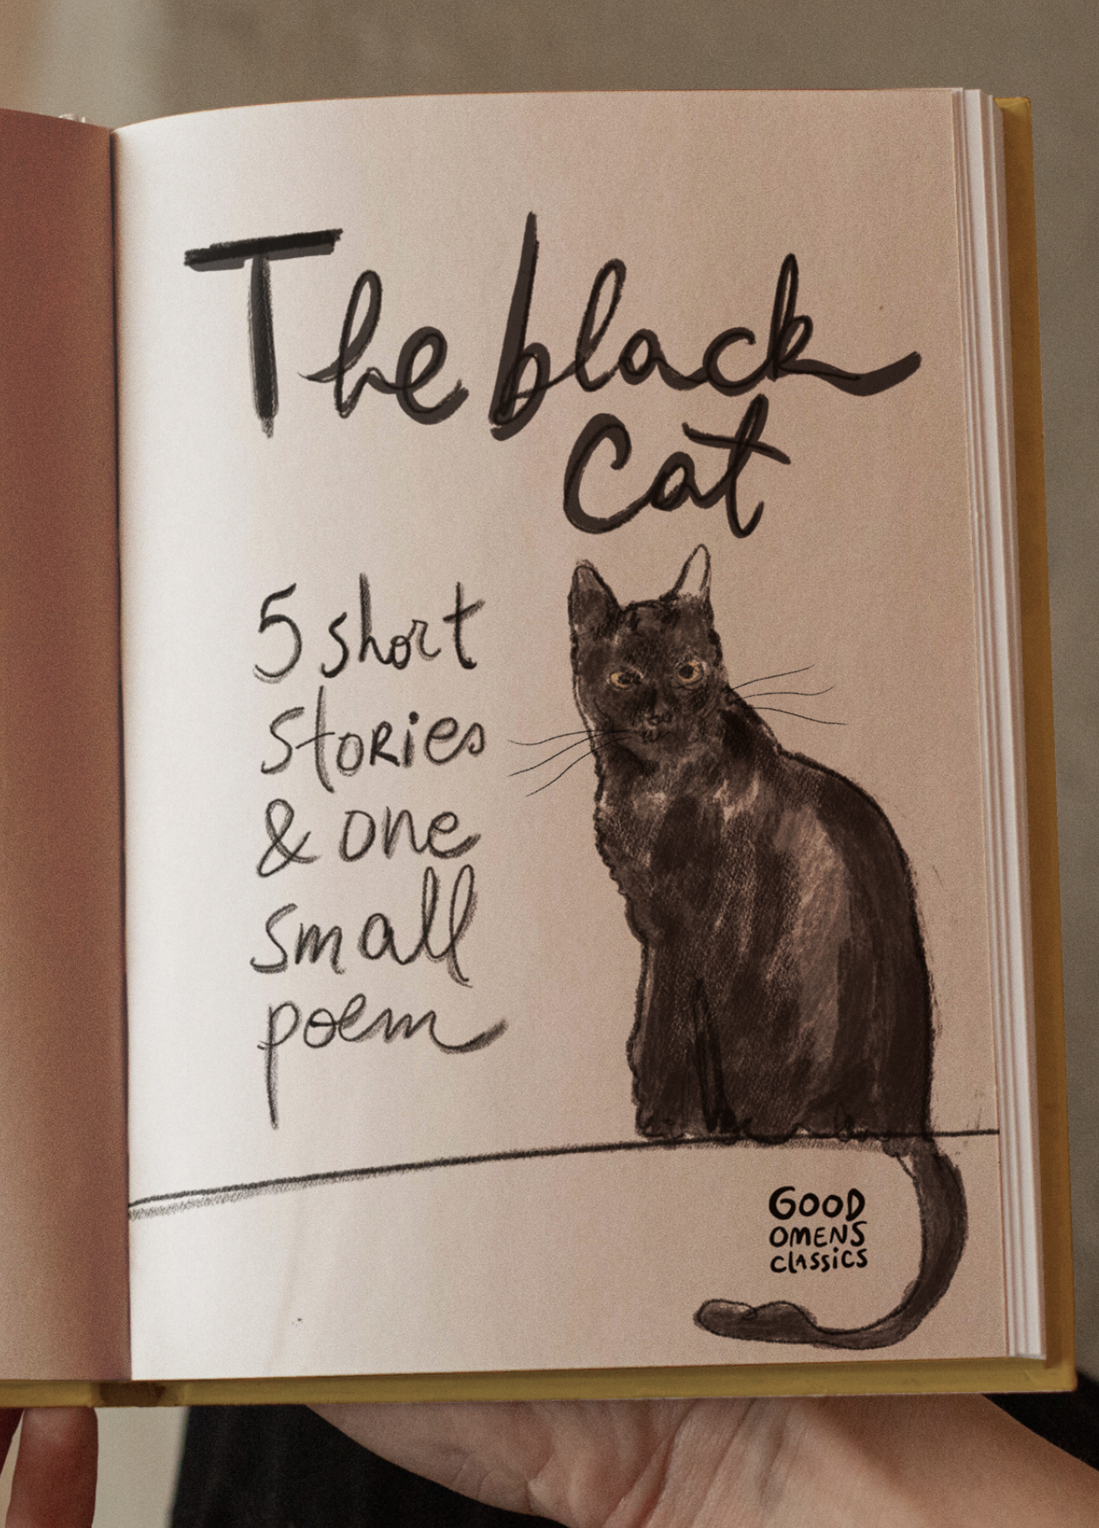 The black
cat
5 short
stories
& one
small
poem
GOOD
OMENS
classics